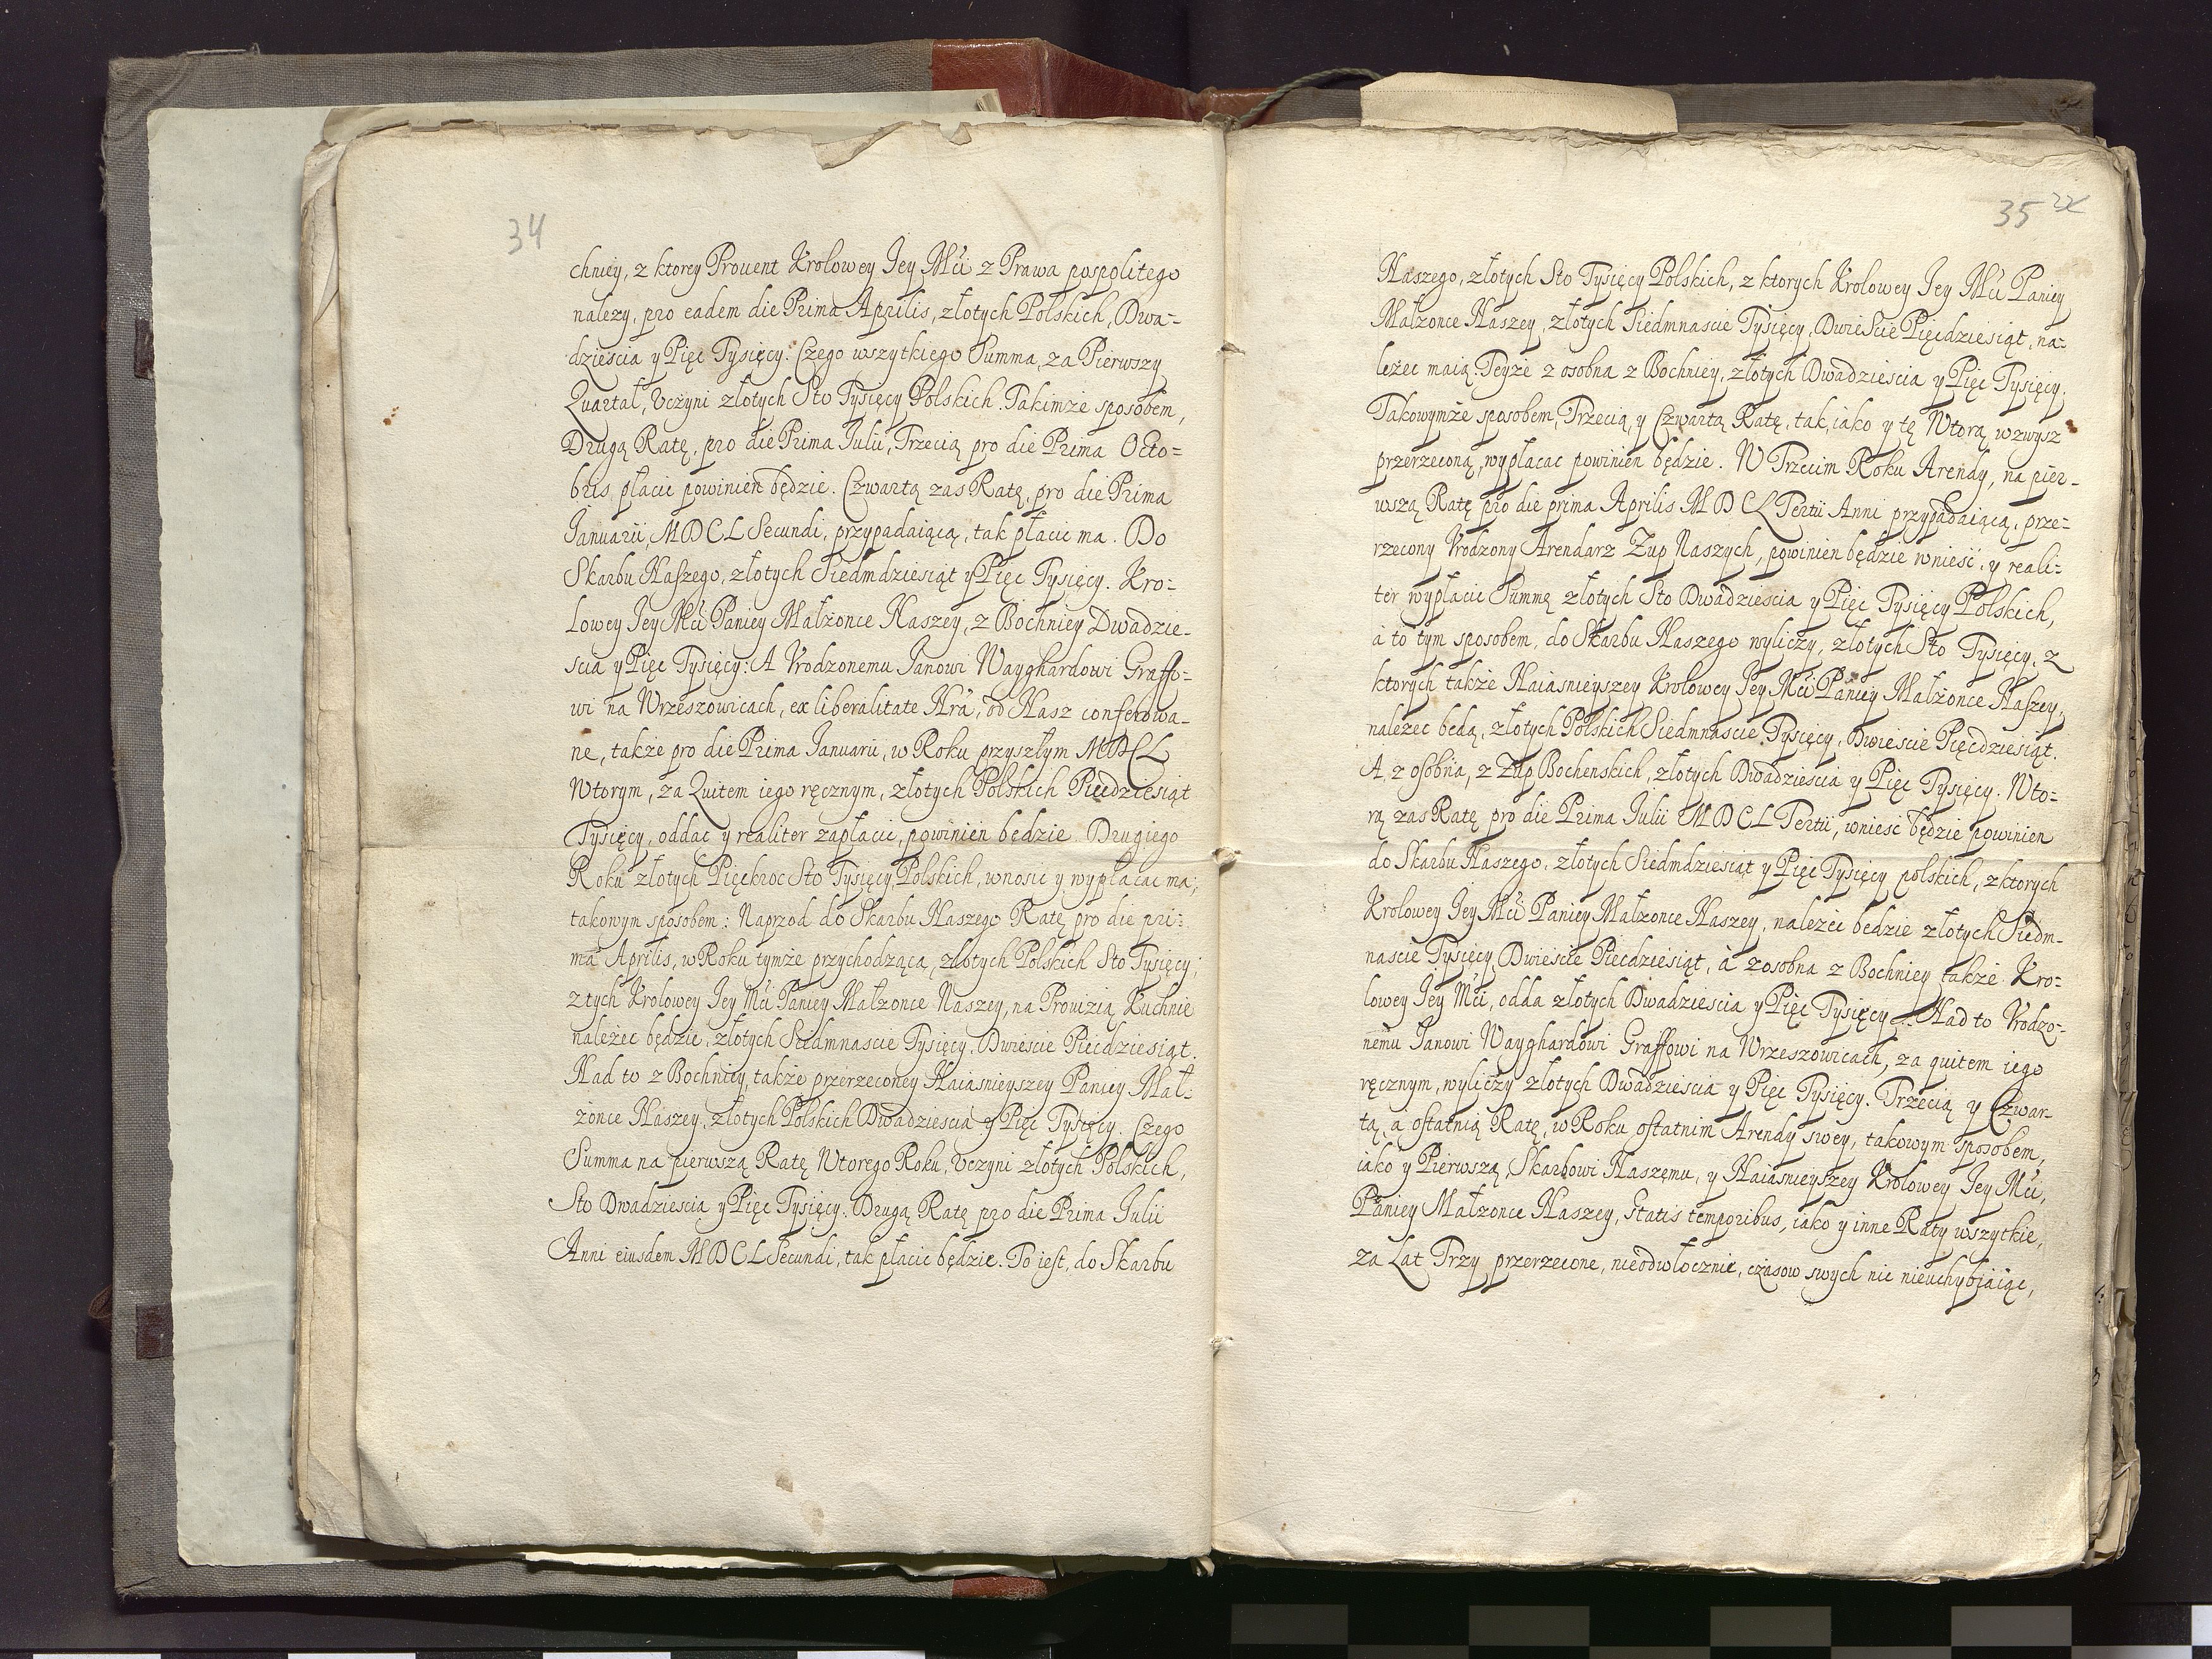 34
chniey, z ktorey Prouent Krolowey Jey Mći z Prawa pospolitego
nalezy, pro eadem die Prima Aprilis, złotych Polskich, Dwa-
dziescia y Pięc Tysięcy. Czego wszytkiego Summa, za Pierwszy
Quartał, Vczyni złotych Sto Tysięcy Polskich. Takimze sposobem,
Drugą Ratę, pro die Prima Iulii, Trzecią pro die Prima Octo=
bris płacic powinien będzie. Czwartą zas Ratę, pro die Prima
Ianuarii, MDCL Secundi, przypadaiącą, tak płacic ma. Do
Skarbu Naszego, złotych Siedmdziesiąt y Pięc Tysięcy. Kro-
lowey Jey Mći Paniey Małżonce Naszey, z Bochniey Dwadzie-
scia y Pięc Tysięcy: A Vrodzonemu Janowi Wayghardowi Graffo-
wi na Wrzeszowicach, ex liberalitate Nrã, od Nasz conferowa-
ne, także pro die Prima Ianuarii, w Roku przyszłym MDCL
Wtorym, za Quitem iego ręcznym, złotych Polskich Piędziesiąt
Tysięcy, oddac y realiter zapłacic, powinien będzie. Drugiego
Roku złotych Pięckroc Sto Tysięcy Polskich, wnosic y wypłacac ma;
takowym sposobem: Naprzod do Skarbu Naszego Ratę pro die pri=
ma Aprilis, w Roku tymże przychodząca, złotych Polskich Sto Tysięcy;
z tych Krolowey Jey Mći Paniey Małzonce Naszey, na Prowizią Kuchnie
należec będzie, złotych Siedmnascie Tysięcy, Dwiescie Piecdziesiąt.
Nad to z Bochniey, także przerzeconey Naiasnieyszey Paniey Mał-
żonce Naszey, złotych Polskich Dwadziescia y Pięc Tysięcy. Czego
Summa na pierwszą Ratę Wtorego Roku, Vczyni złotych Polskich,
Sto Dwadziescia y Pięc Tysięcy. Drugą Ratę pro die Prima Iulii
Anni eiusdem MDCL Secundi, tak płacic będzie. To iest, do Skarbu
35
Naszego, złotych Sto Tysięcy Polskich, z ktorych Krolowey Jey Mći Paniey
Małzonce Naszey, złotych Siedmnascie Tysięcy, Dwiescie Pięcdziesiąt, na-
leżec maią. Teyże z osobna z Bochniey, złotych Dwadziescia y Pięc Tysięcy.
Takowymże sposobem, Trzecią, y Czwartą Ratę, tak, iako y tę Wtorą, wzwysz
przerzeconą, wypłacac powinien będzie. W Trzecim Roku Arendy, na pier-
wszą Ratę pro die prima Aprilis MDCL Tertii Anni przypadaiącą, prze-
rzecony Vrodzony Arendarz Zup Naszych, powinien będzie wnieść, y reali-
ter wypłacic Summę złotych Sto Dwadziescia y Pięc Tysięcy Polskich,
a to tym sposobem, do Skarbu Naszego wyliczy, złotych Sto Tysięcy, z
ktorych także Naiasnieyszey Krolowey Jey Mći Paniey Małżonce Naszey,
należec będą, złotych Polskich Siedmnascie Tysięcy, Dwiescie Pięcdziesiąt.
A, z osobna, z Zup Bochenskich, złotych Dwadziescia y Pięc Tysięcy. Wto-
rą zas Ratę pro die Prima Iulii MDCL Tertii, wniesć będzie powinien
do Skarbu Naszego, złotych Siedmdziesiąt y Pięc Tysięcy polskich, z ktorych
Krolowey Jey Mći Paniey Małzonce Naszey, należéc będzie złotych Siedm-
nascie Tysięcy Dwiescie Piecdziesiąt, a z osobna z Bochniey także Kro-
lowey Jey Mći, odda złotych Dwadziescia y Pięc Tysięcy. Nad to Vrodzo-
nemu Janowi Wayghardowi Graffowi na Wrzeszowicach, za quitem iego
ręcznym, wyliczy złotych Dwadziescia y Pięc Tysięcy. Trzecią y Czwar-
tą, a ostatnią Ratę, w Roku ostatnim Arendy swey, takowym sposobem,
iako y Pierwszą, Skarbowi Naszemu, y Naiasnieyszey Krolowey Jey Mći,
Paniey Małzonce Naszey, Statis temporibus, iako y inne Raty wszytkie,
za Lat Trzy przerzecone, nieodwłocznie, czasow swych nic nieuchybiaiąc,